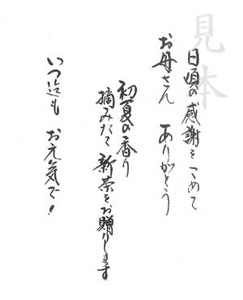 見本
日頃の感謝をこめて
お母さん ありがとう
初夏の香り
摘みたて新茶をお贈りします
いつ迄も お元気で!